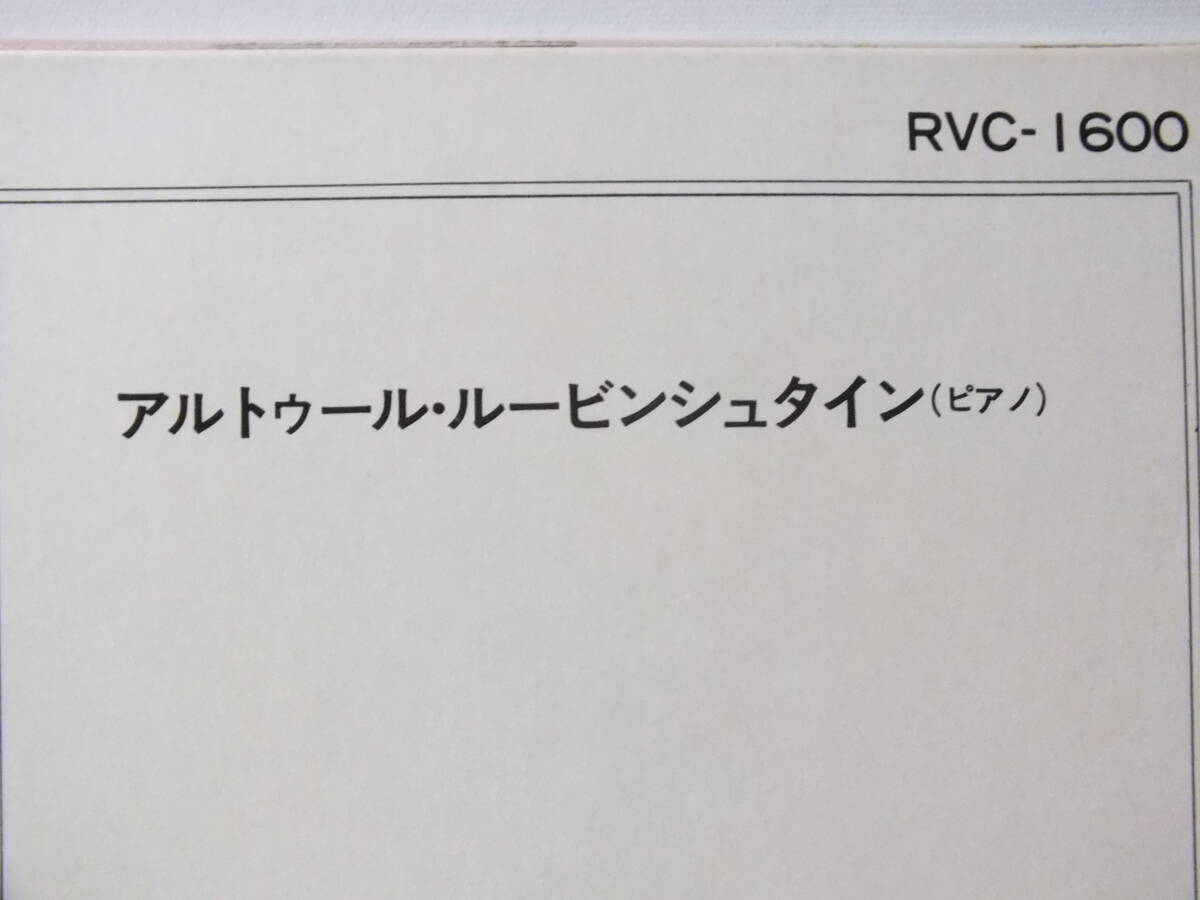 RVC-1600
アルトゥール・ルービンシュタイン(ピアノ)